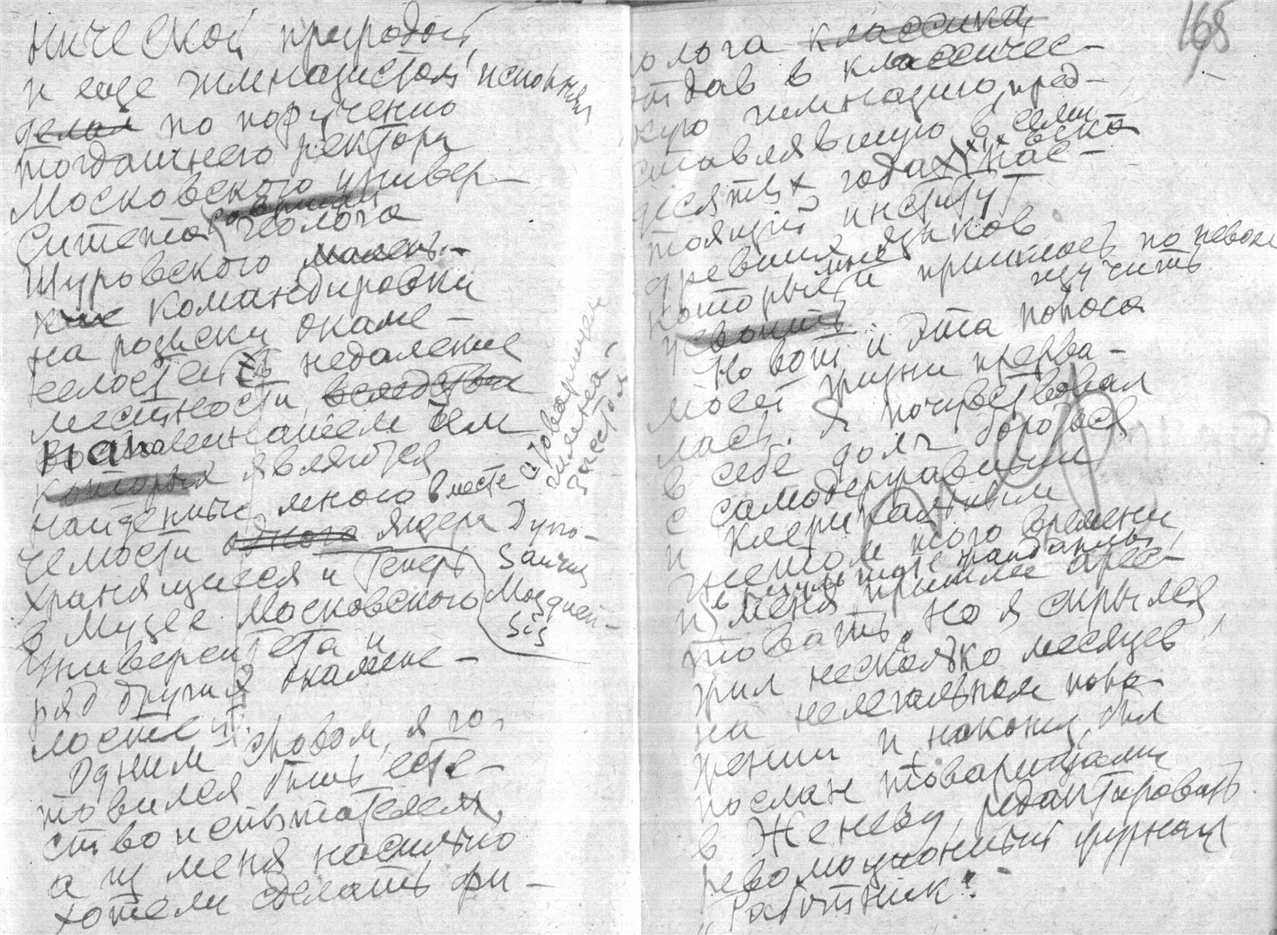 нической природой,
и еще гимназистом исполнял
делал по поручению
тогдашнего ректора
Московского универ-
ситета геолога
Щуровского малень-
кие командировки
на розыски окаме-
нелостей в недалекие
местности, вследствие
чем
которых являются
найденные много вместе с товарищем
гимна-
зистом
чемости одного ящера
хранящиеся и теперь
в музее Московского
Университета и
ряд других окамене-
лостей.
Одним словом, я го-
товился быть есте-
ствоиспытателем,
а из меня насильно
хотели сделать фи-
168
олога классика
отдав в классичес-
кую гимназию, пред-
ставлявшую в семи
десятых годах XIX века нас-
тоящий институт
древних языков
которые мне пришлось по неволе
изучить
Но вот и эта полоса
моей жизни прерва-
лась. Я почувствовал
в себе долг бороться
с самодержавным
и клерикальным
гнетом того времени
в
меня пришли арес-
товать, но я скрылся,
жил несколько месяцев
на нелегальном поло-
жении и наконец был
послан товарищами
в Женеву, редактировать
революционный журнал
"Работник".